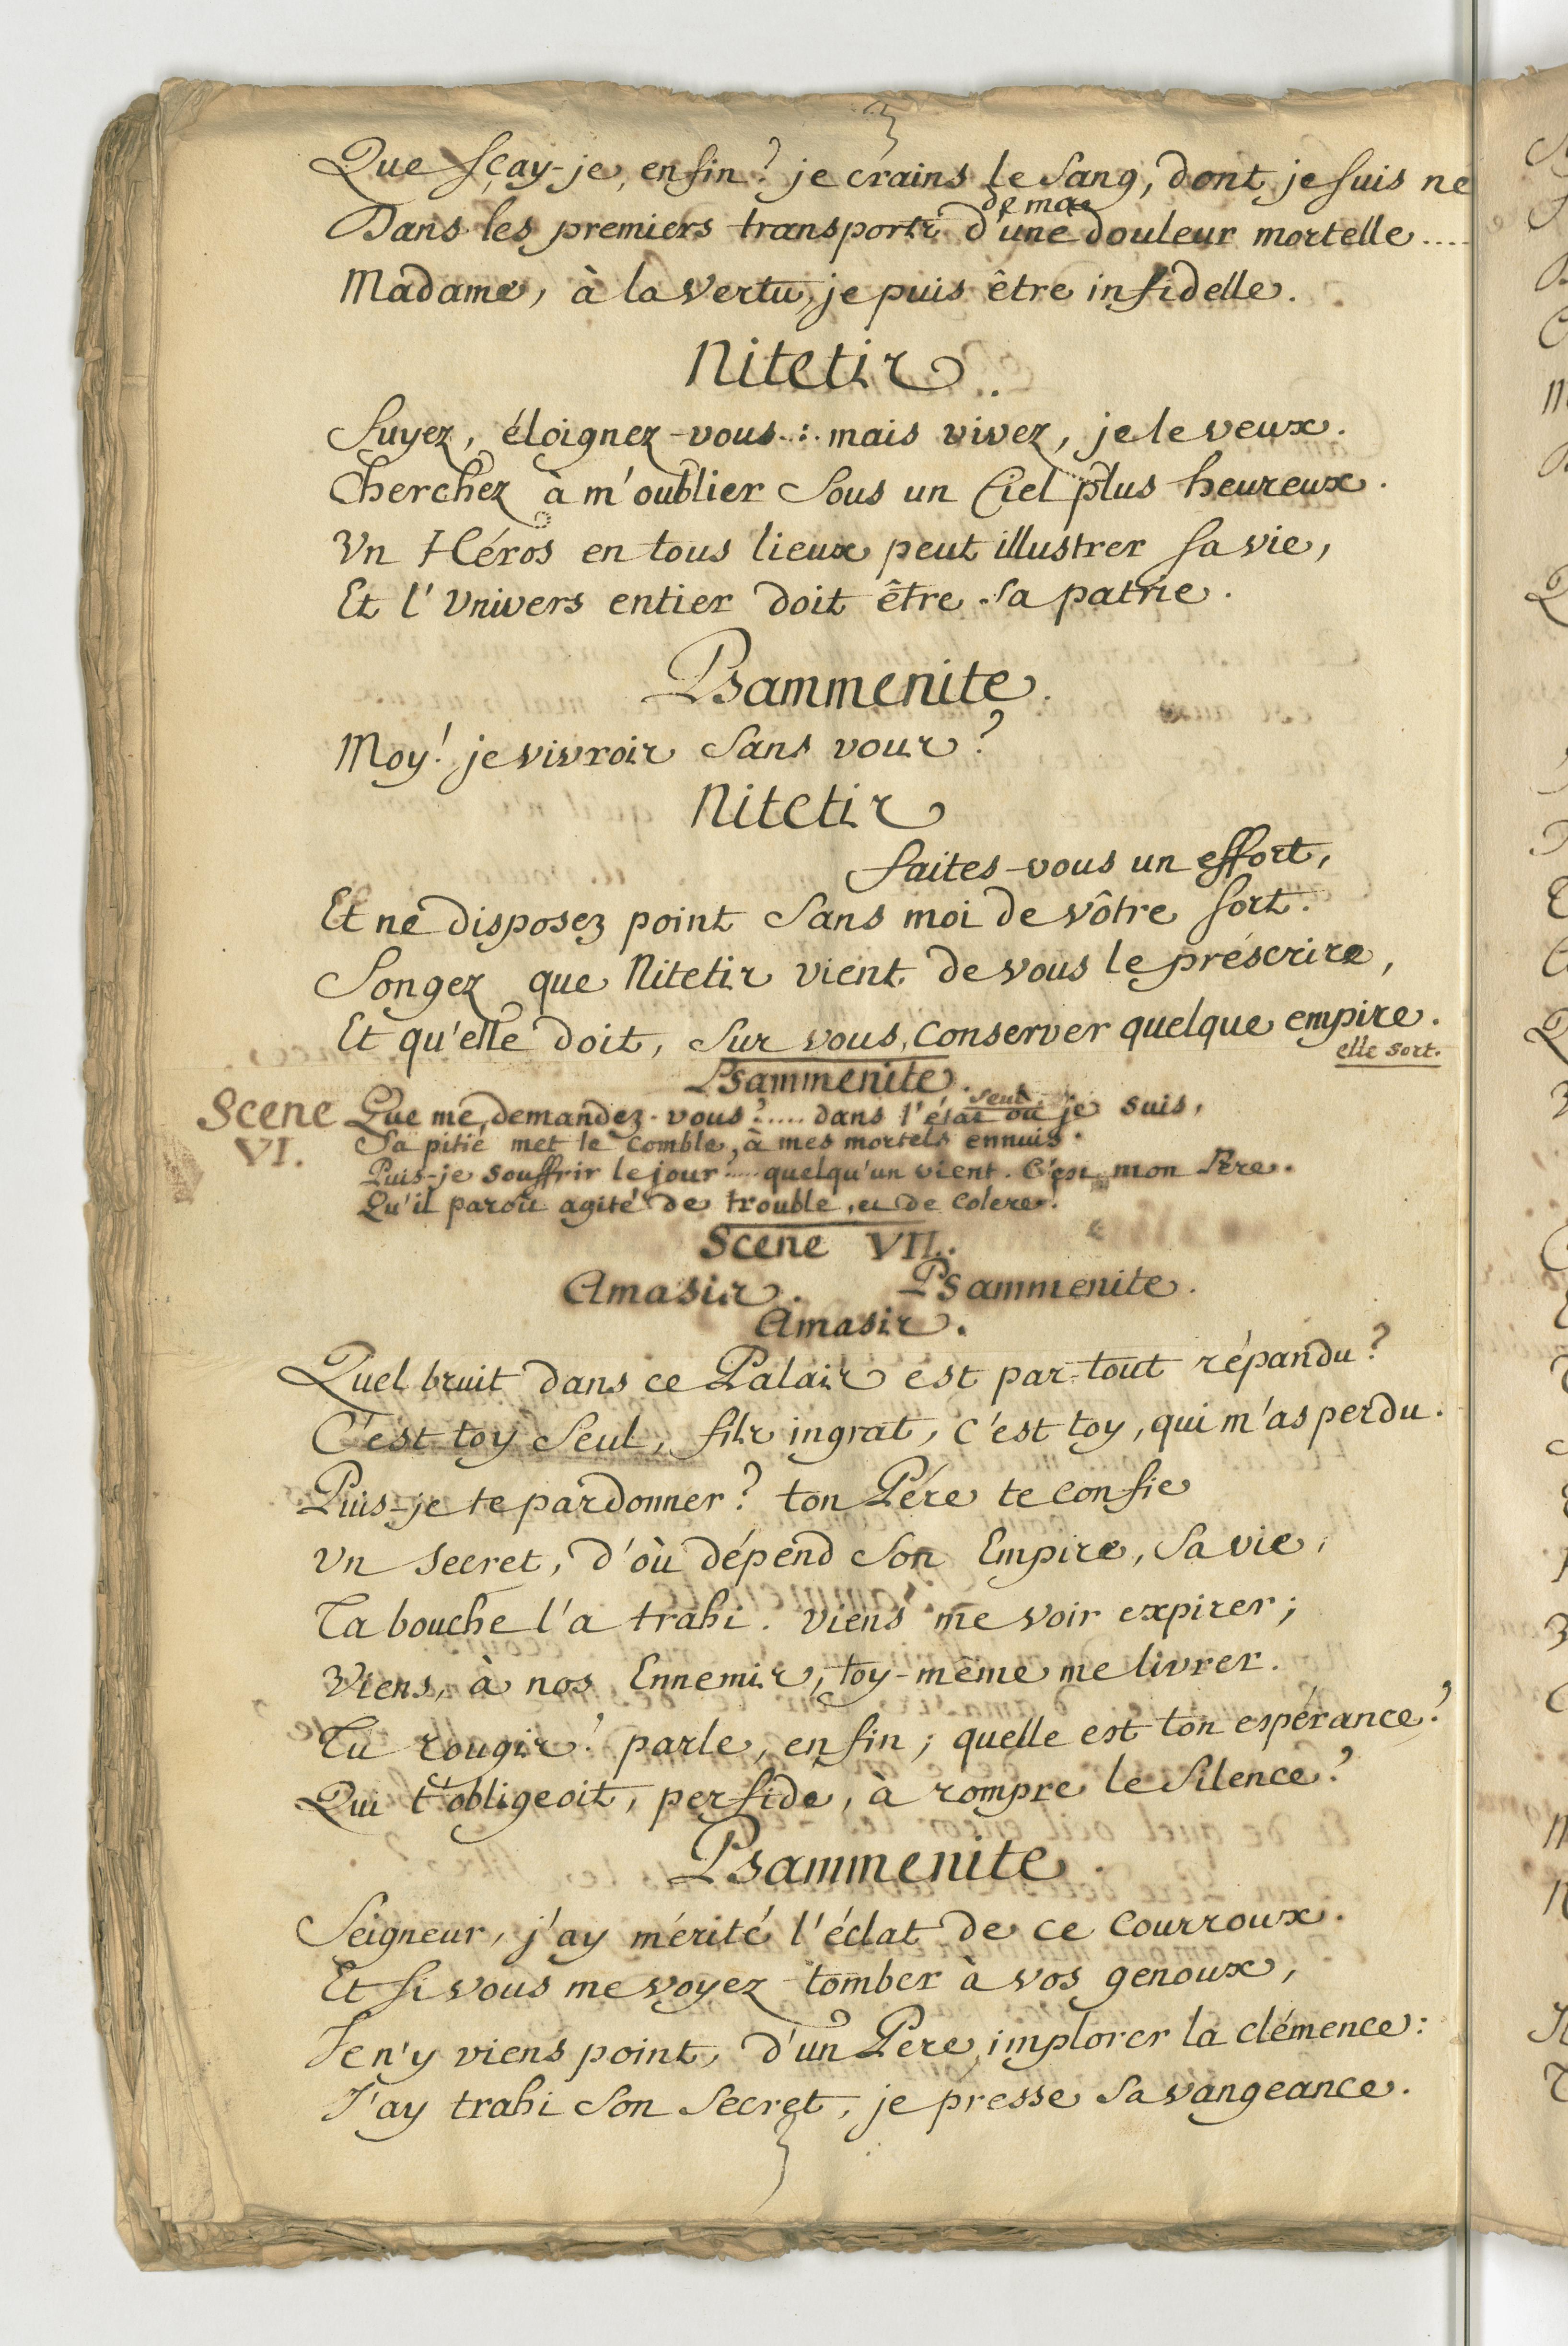 Que sçay-je, enfin? je crains le sang, dont je suis né
de ma
Dans les premiers transports d'une douleur mortelle....
Madame, à la vertu, je puis être infidelle.
Nitetis.
fuyez, éloignez-vous.:. mais vivez, je le veux.
Cherchez à m'oublier sous un Ciel plus heureux.
Vn Héros en tous lieux peut illustrer sa vie,
Et l'Vnivers entier doit être sa patrie.
Psammenite.
Moy! je vivrois sans vous?
Nitetis
faites-vous un effort,
Et ne disposez point sans moi de vôtre sort.
Songez que Nitetis vient de vous le préscrire,
Et qu'elle doit, sur vous, conserver quelque empire.
elle sort.
Psammenite.
seul.
Scene VI.
Que me demandez-vous?..... dans l'état où je suis,
Sa pitié met le comble, à mes mortels ennuis.
Puis-je souffrir le jour?.... quelqu'un vient. C'est mon Pere.
Qu'il paroît agité de trouble, et de colere!
Scene VII.
Amasis. Psammenite.
Amasis.
Quel bruit dans ce Palais est par-tout répandu?
C'est toy seul, fils ingrat, c'est toy, qui m'as perdu.
Puis-je te pardonner? ton Pére te confie
Vn secret, d'où dépend son Empire, sa vie,
Ta bouche l'a trahi. viens me voir expirer;
Viens, à nos Ennemis, toy-même me livrer.
Tu rougis! parle, enfin; quelle est ton espérance?
Qui t'obligeoit, perfide, à rompre le silence?
Psammenite.
Seigneur, j'ay mérité l'éclat de ce courroux.
Et si vous me voyez tomber à vos genoux,
Je n'y viens point, d'un Pere, implorer la clémence:
J'ay trahi son secret, je presse sa vangeance.